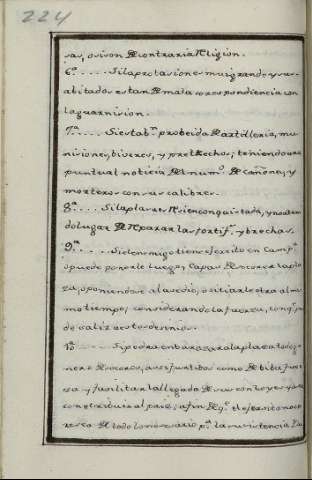 224
sas, o si son de contraria Religion.
6ª. . . . . Si la poblasion es mui grande y sus a-
bitadores estan de mala correspondiencia con
la guarnision.
7ª. . . . . Si esta bⁿ probeida de artilleria, mu
nisiones, biberes, y pretrechos; teniendo una
puntual noticia del numº de cañones, y
morteros con sus calibres.
8ª. . . . Si la plasa es Resien conquistada, y no a ten
do lugar de Reparar las fortifⁿ y brechas.
9ª. . . . . Si el enemigo tiene exersito en Campª
o puede ponerle luego; Capas de socorrer la pla
za, oponiendose al asedio, o sitiar le otra al mis
mo tiempo; considerando la fuersa,
de salir a estos desinios.
10. . . . . Si podra embarazar a la plasa todo g-
nero de socorros, assi furtibos como de biba fuer
sa y facilitar la llegada de sus conboyes y
contribuir al pais; a fin de qᵉ el exersito no ca
resca de todo lo nesesario pª la subsistencia